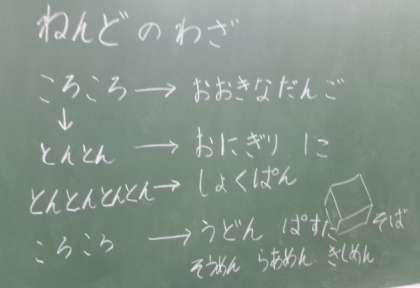 ねんどのわざ
ころころ → おおきなだんご
↓
とんとん → おにぎり に
とんとんとんとん → しょくぱん
ころころ → うどん ぱすた そば
そうめん らあめん きしめん